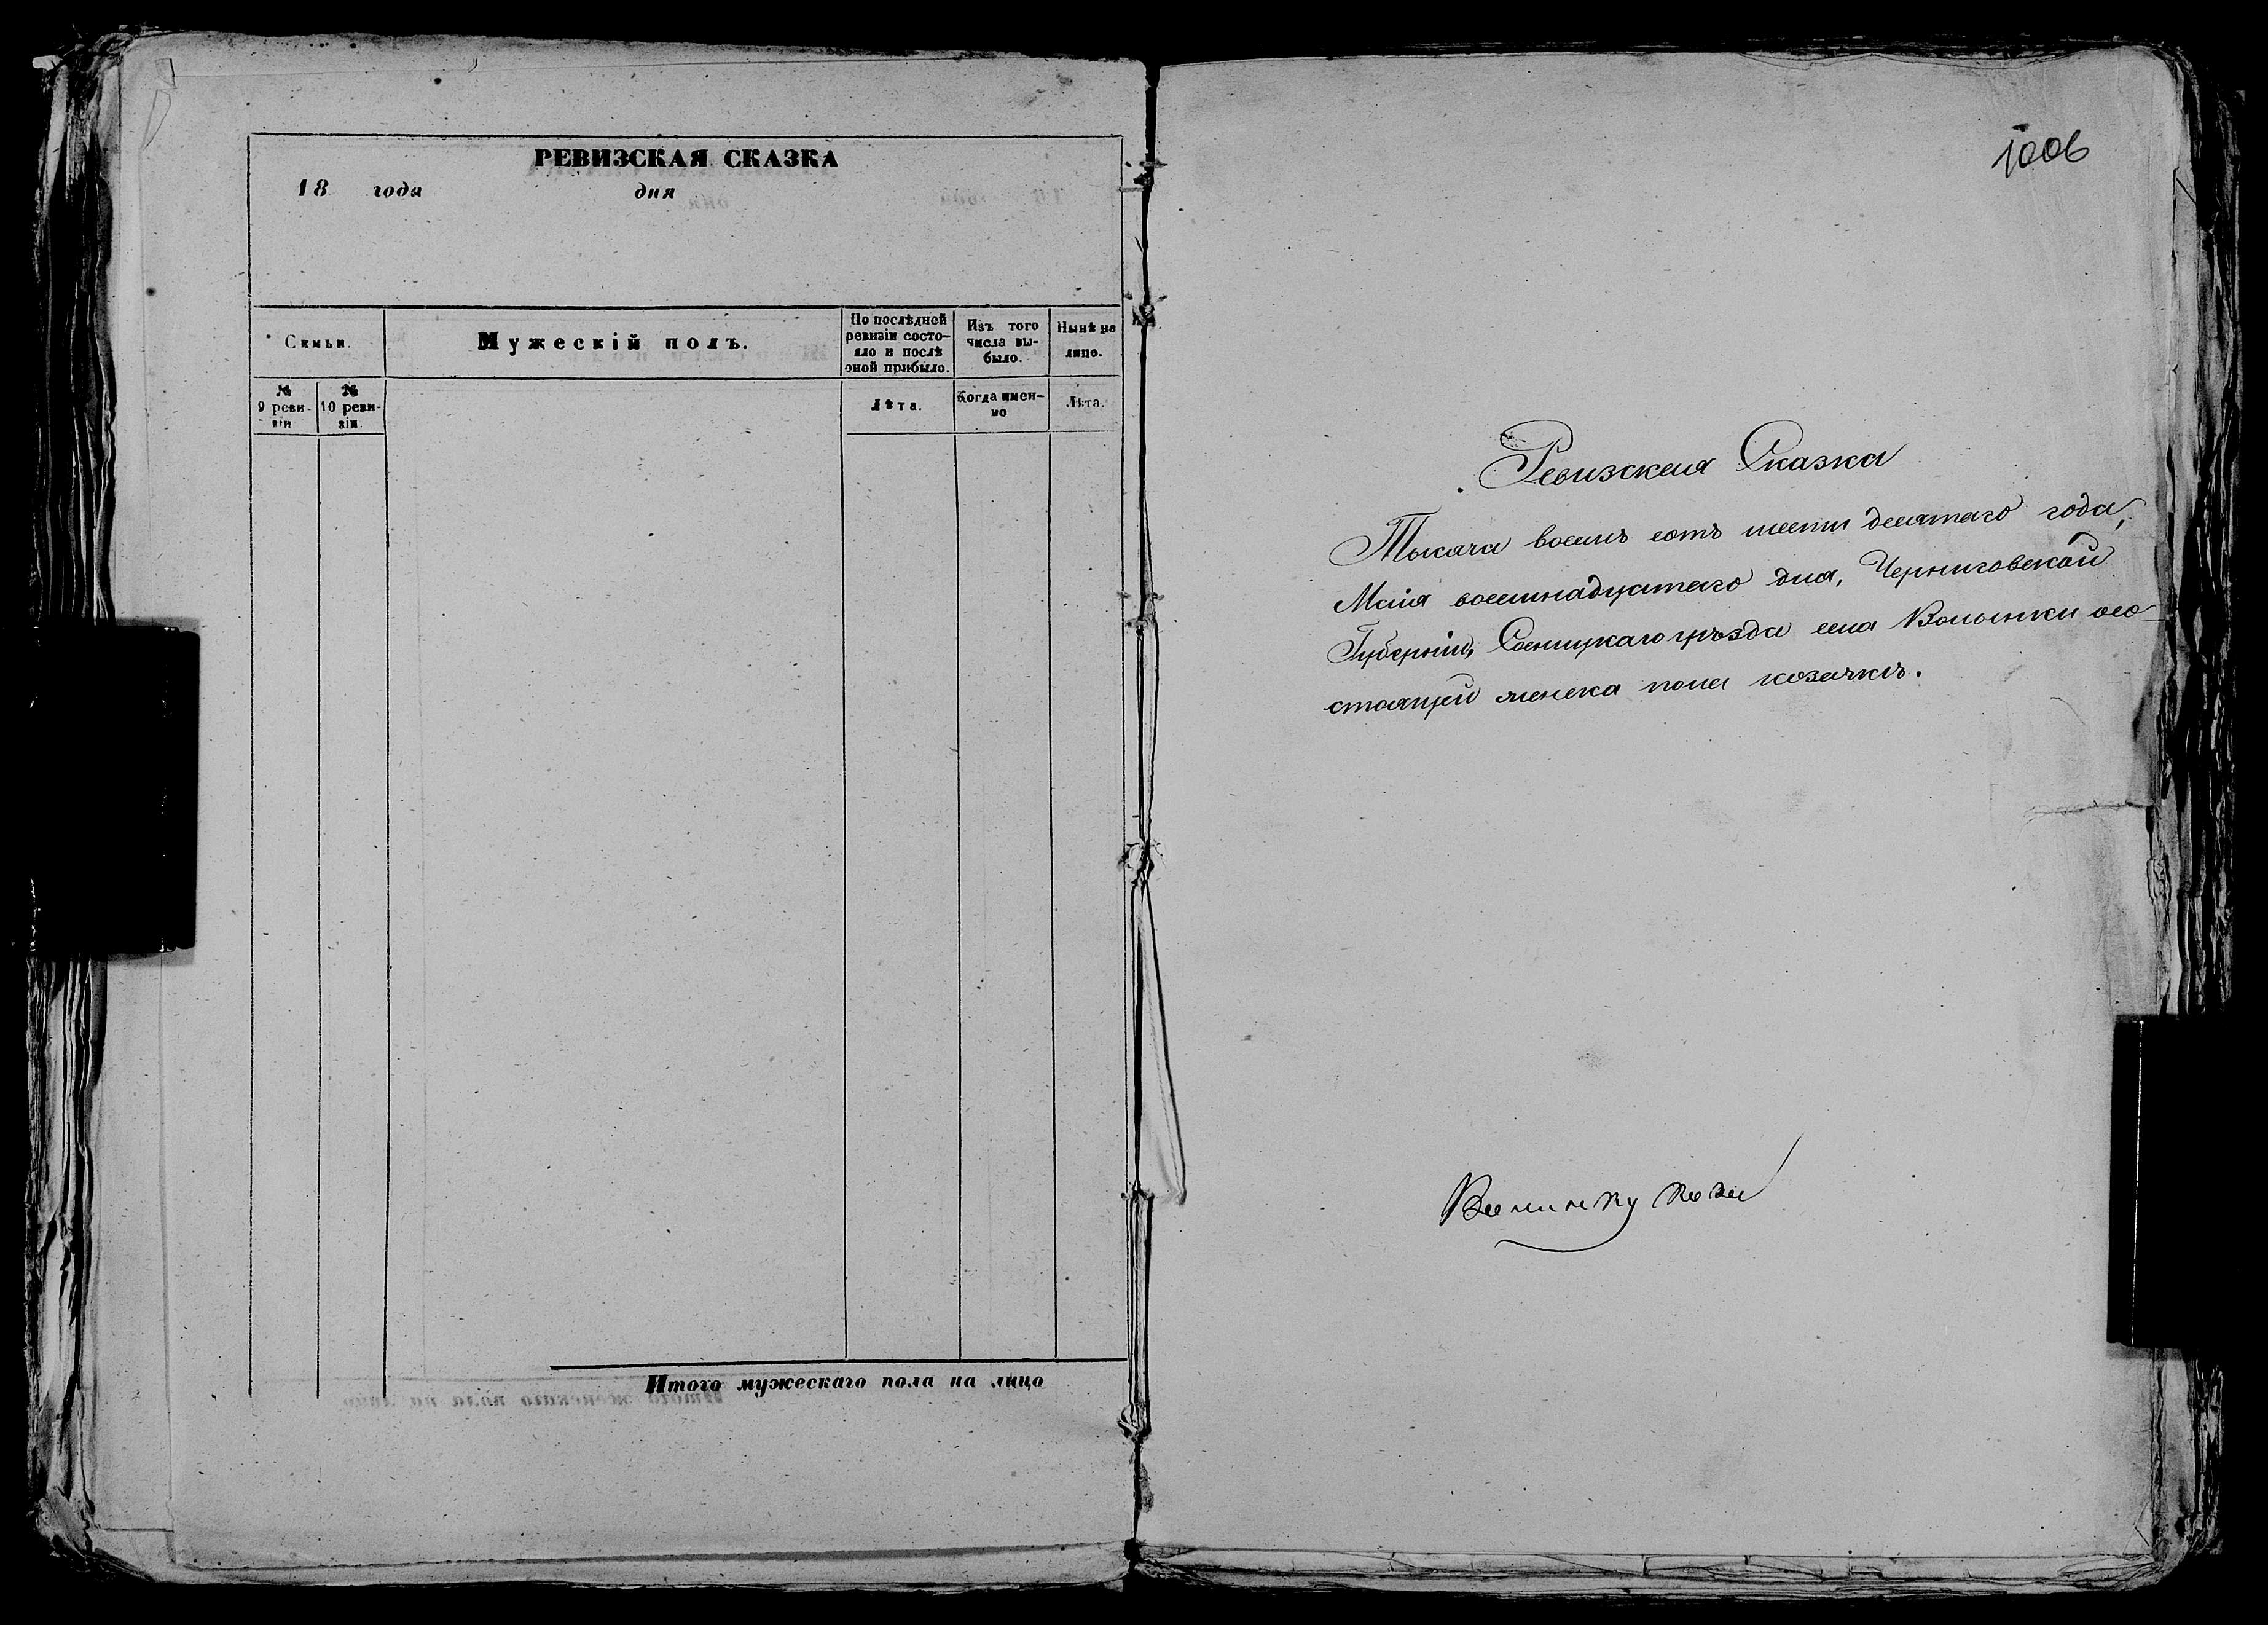 РЕВИЗСКАЯ СКАЗКА
18 года дня
Семьи.
Мужескій полъ.
По послѣдней ревизіи состо-
яло и послѣ
оной прибыло.
Изъ того
числа вы-
было.
Нынѣ на
лицо.
№
9 реви-
зіи
№
10 реви-
зіи.
Лѣта.
Когда имен-
но
Лѣта.
Итого мужескаго пола на лицо
1006
Ревизская Сказка
Тысяча восемь сотъ шесть десятаго года,
Маія восемнадцатаго дня, Черниговской
Губерніи, Сосницкаго уѣзда села Волынки осо
стоящей женска пола козачкъ.